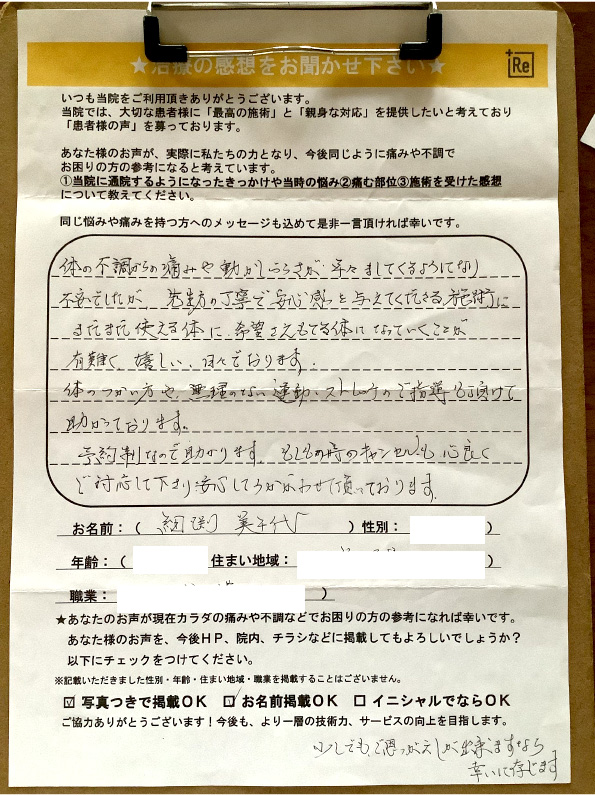 ★治療の感想をお聞かせ下さい★
Re
いつも当院をご利用頂きありがとうございます。
当院では、大切な患者様に「最高の施術」と「親身な対応」を提供したいと考えており
「患者様の声」を募っております。
あなた様のお声が、実際に私たちの力となり、今後同じように痛みや不調で
お困りの方の参考になると考えています。
①当院に通院するようになったきっかけや当時の悩み②痛む部位③施術を受けた感想
について教えてください。
同じ悩みや痛みを持つ方へのメッセージも込めて是非一言頂ければ幸いです。
体の不調からの痛みや動かしづらさが年々ましてくるようになり
不安でしたが 先生方の丁寧で安心感を与えてくださる施術に
まだまだ使える体に、希望さえもてる体になっていくことが
有難く、嬉しい、日々であります。
体のつかい方や、無理のない運動、ストレッチのご指導も頂けて
助かっております。
予約制なので助かります。もしもの時のキャンセルも心良く
ご対応して下さり安心してうかがわせて頂っております。
お名前：（ 細渕 美千代 ）性別： ）
年齢：（ 住まい地域： ）
職業： ）
★あなたのお声が現在カラダの痛みや不調などでお困りの方の参考になれば幸いです。
あなた様のお声を、今後ＨＰ、院内、チラシなどに掲載してもよろしいでしょうか？
以下にチェックをつけてください。
※記載いただきました性別・年齢・住まい地域・職業を掲載することはございません。
☑ 写真つきで掲載ＯＫ ☑ お名前掲載ＯＫ □ イニシャルでならＯＫ
ご協力ありがとうございます！今後も、より一層の技術力、サービスの向上を目指します。
少しでも、ご恩つがえしが出来ますなら
幸いに存じます